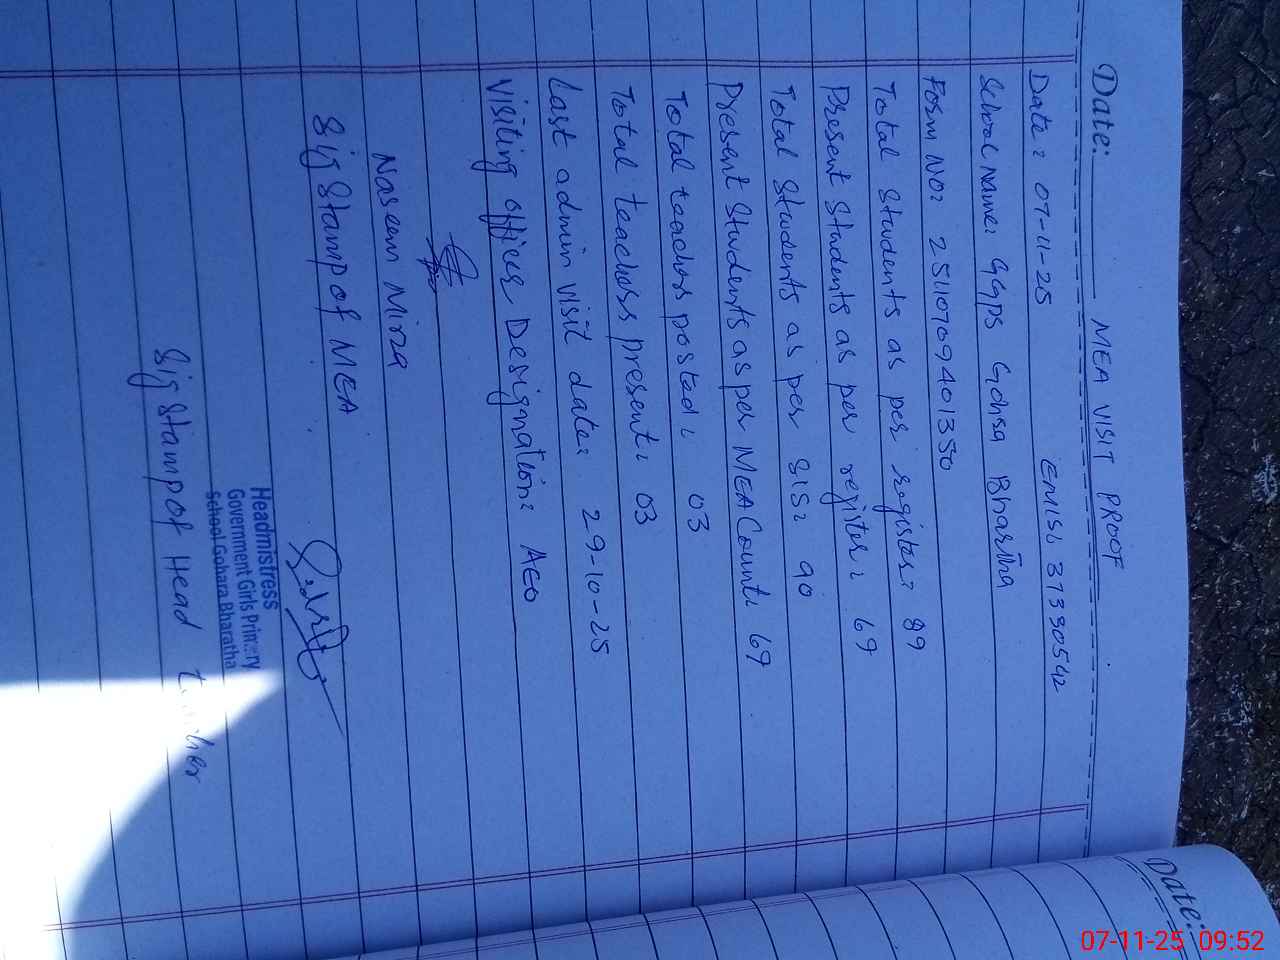 Date:
MEA VISIT PROOF
Date: 07-11-25 EMIS: 37330542
School Name: GGPS Gohra Bhartha
Form NO: 25110709401350
Total Students as per register: 89
Present Students as per register: 69
Total Students as per SIS: 90
Present Students as per MEA Count: 69
Total teachers posted: 03
Total teachers present: 03
Last admin visit date: 29-10-25
Visiting officer Designation: AEO
Naseem Mirza
Sig Stamp of MEA
Headmistress
Government Girls Primary
School Gohara Bharatha
Sig Stamp of Head teacher
Date:
07-11-25 09:52